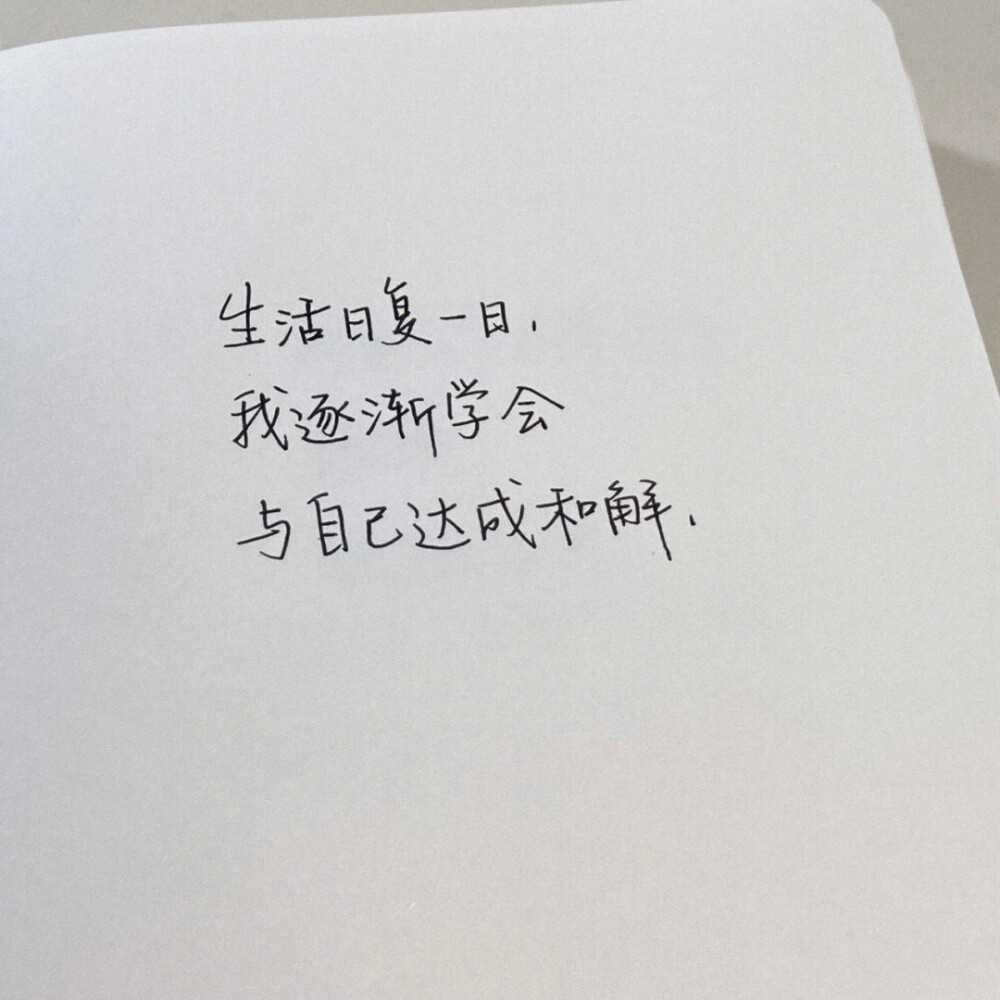 生活日复一日,
我逐渐学会
与自己达成和解.